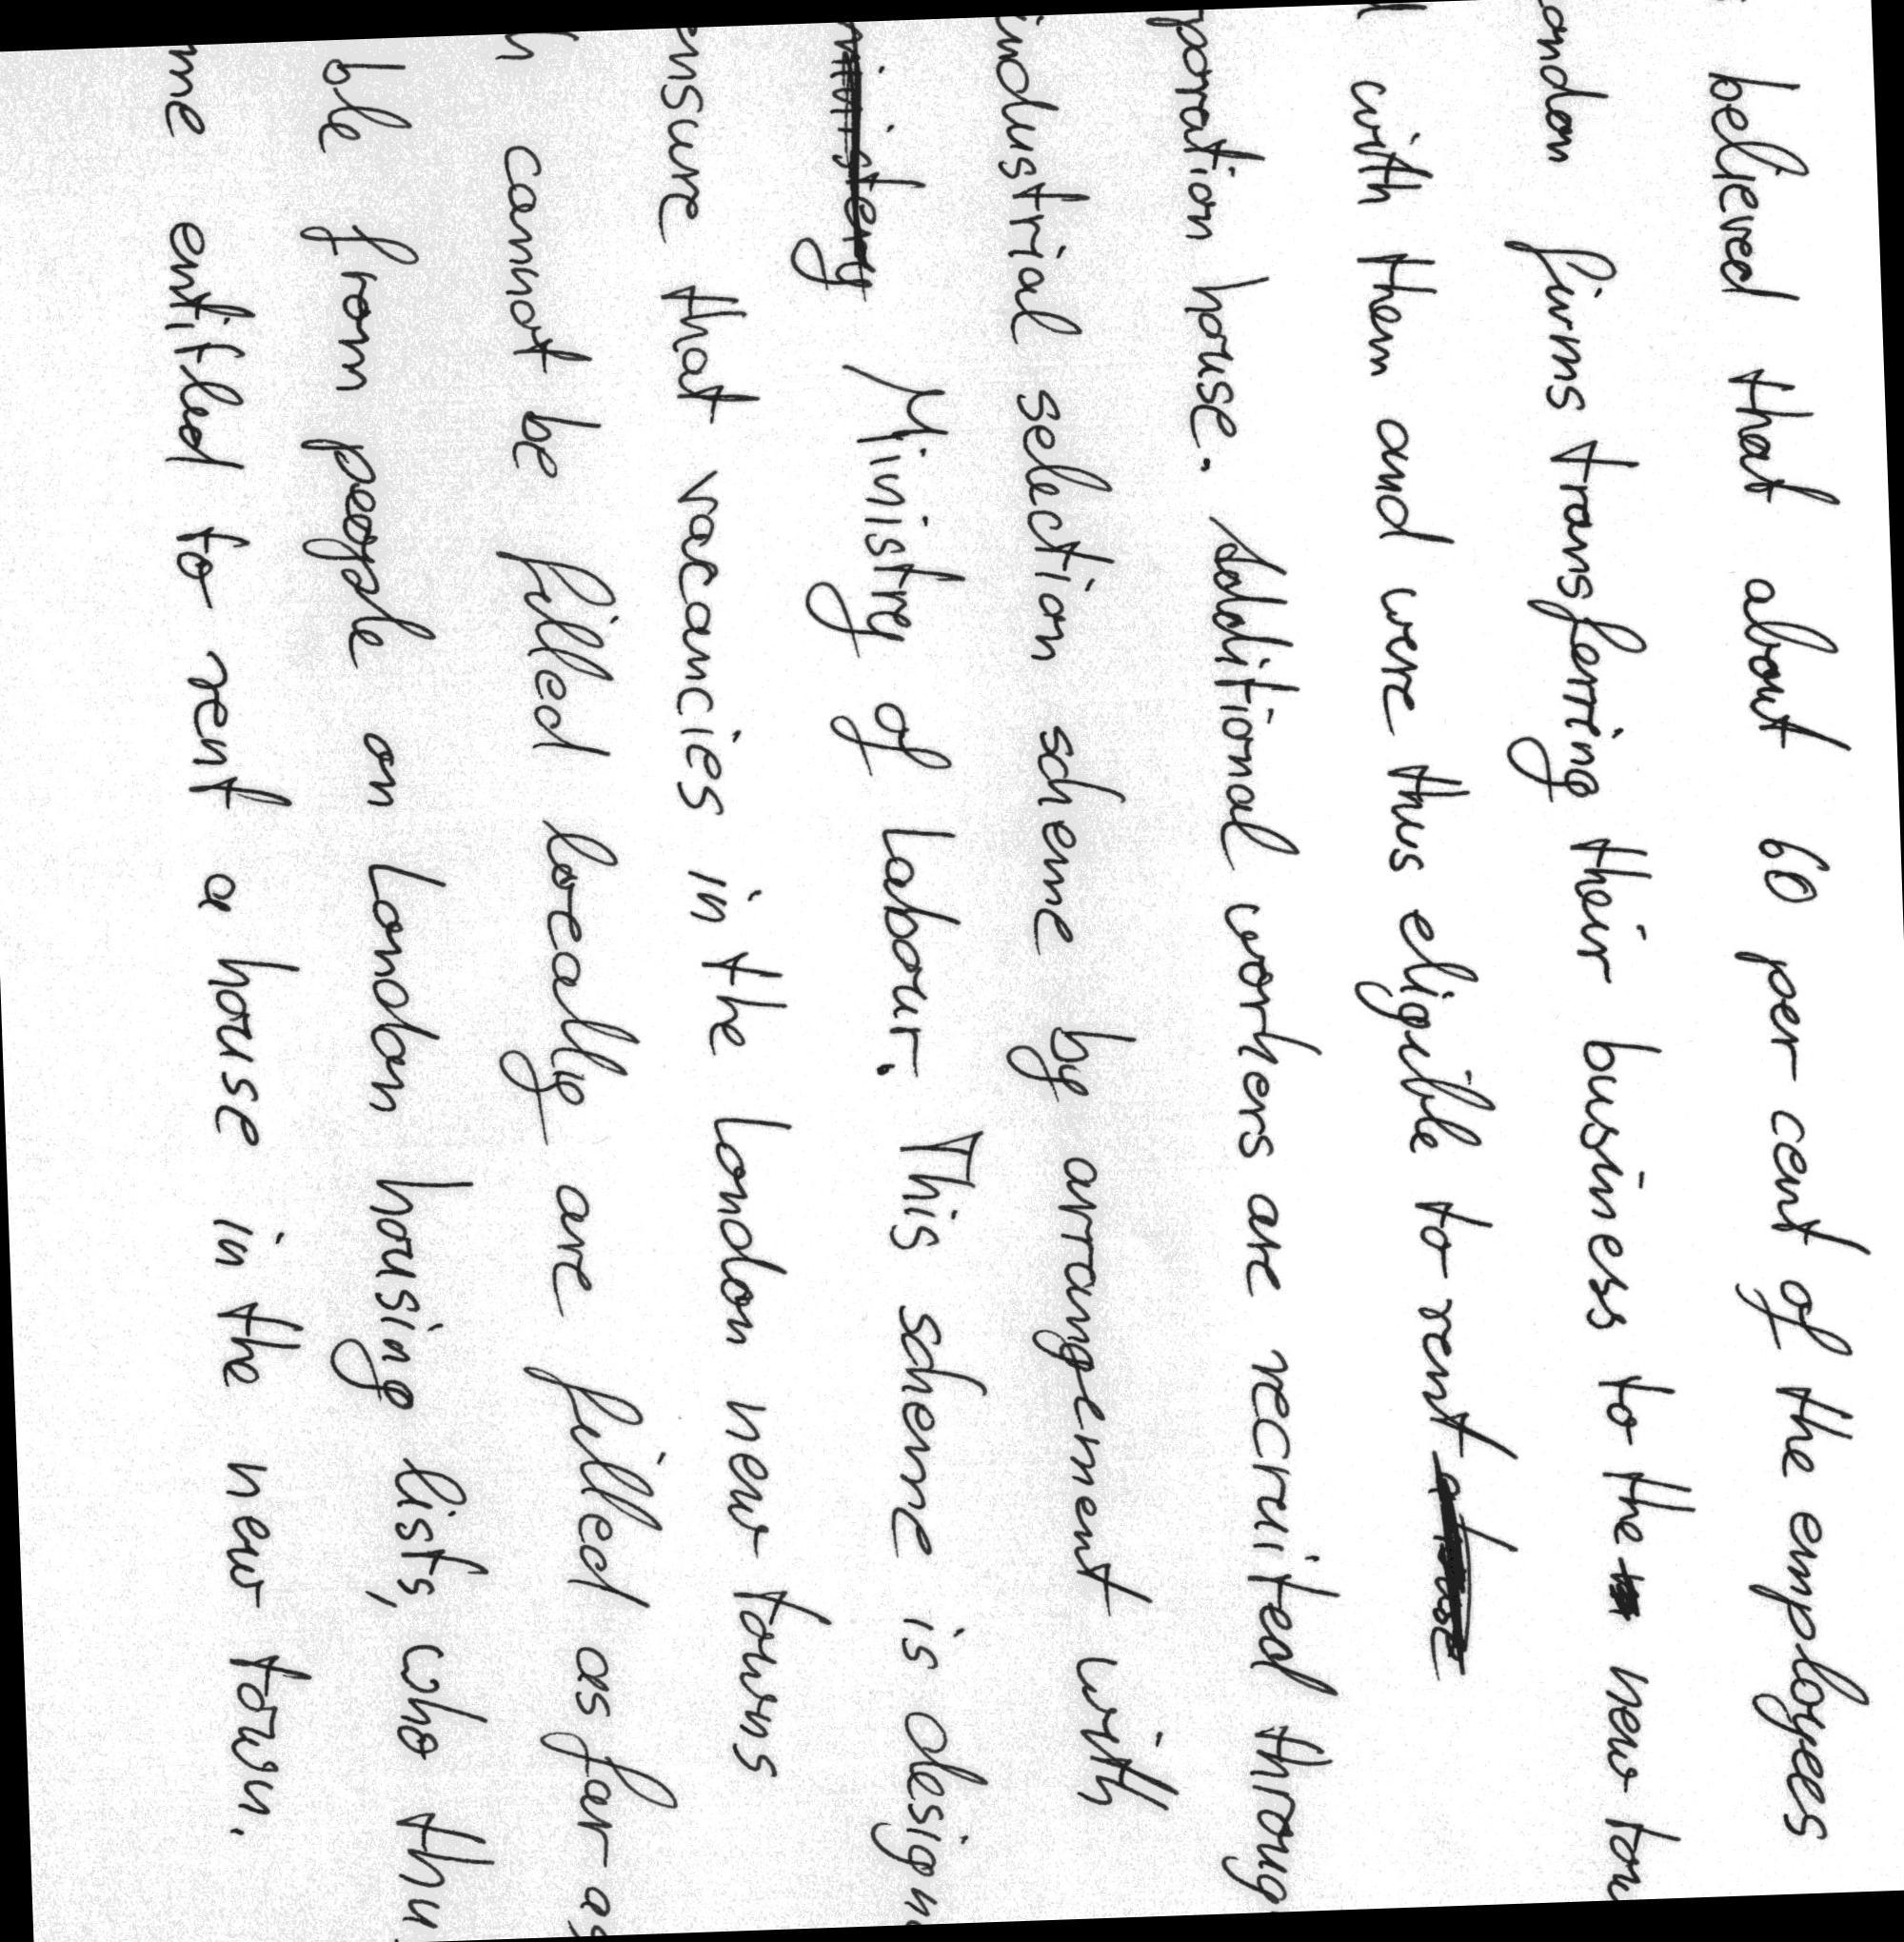 believed that about 60 per cent of the employees
ondon firms transferring their business to the new tow
with them and were thus eligible to rent
poration house. Additional workers are recruited throug
industrial selection scheme by arrangement with
ministery Ministry of Labour. This scheme is design
ensure that vacancies in the London new towns
h cannot be filled locally are filled as far as
ble from people on London housing lists, who thu
me entitled to rent a house in the new town.